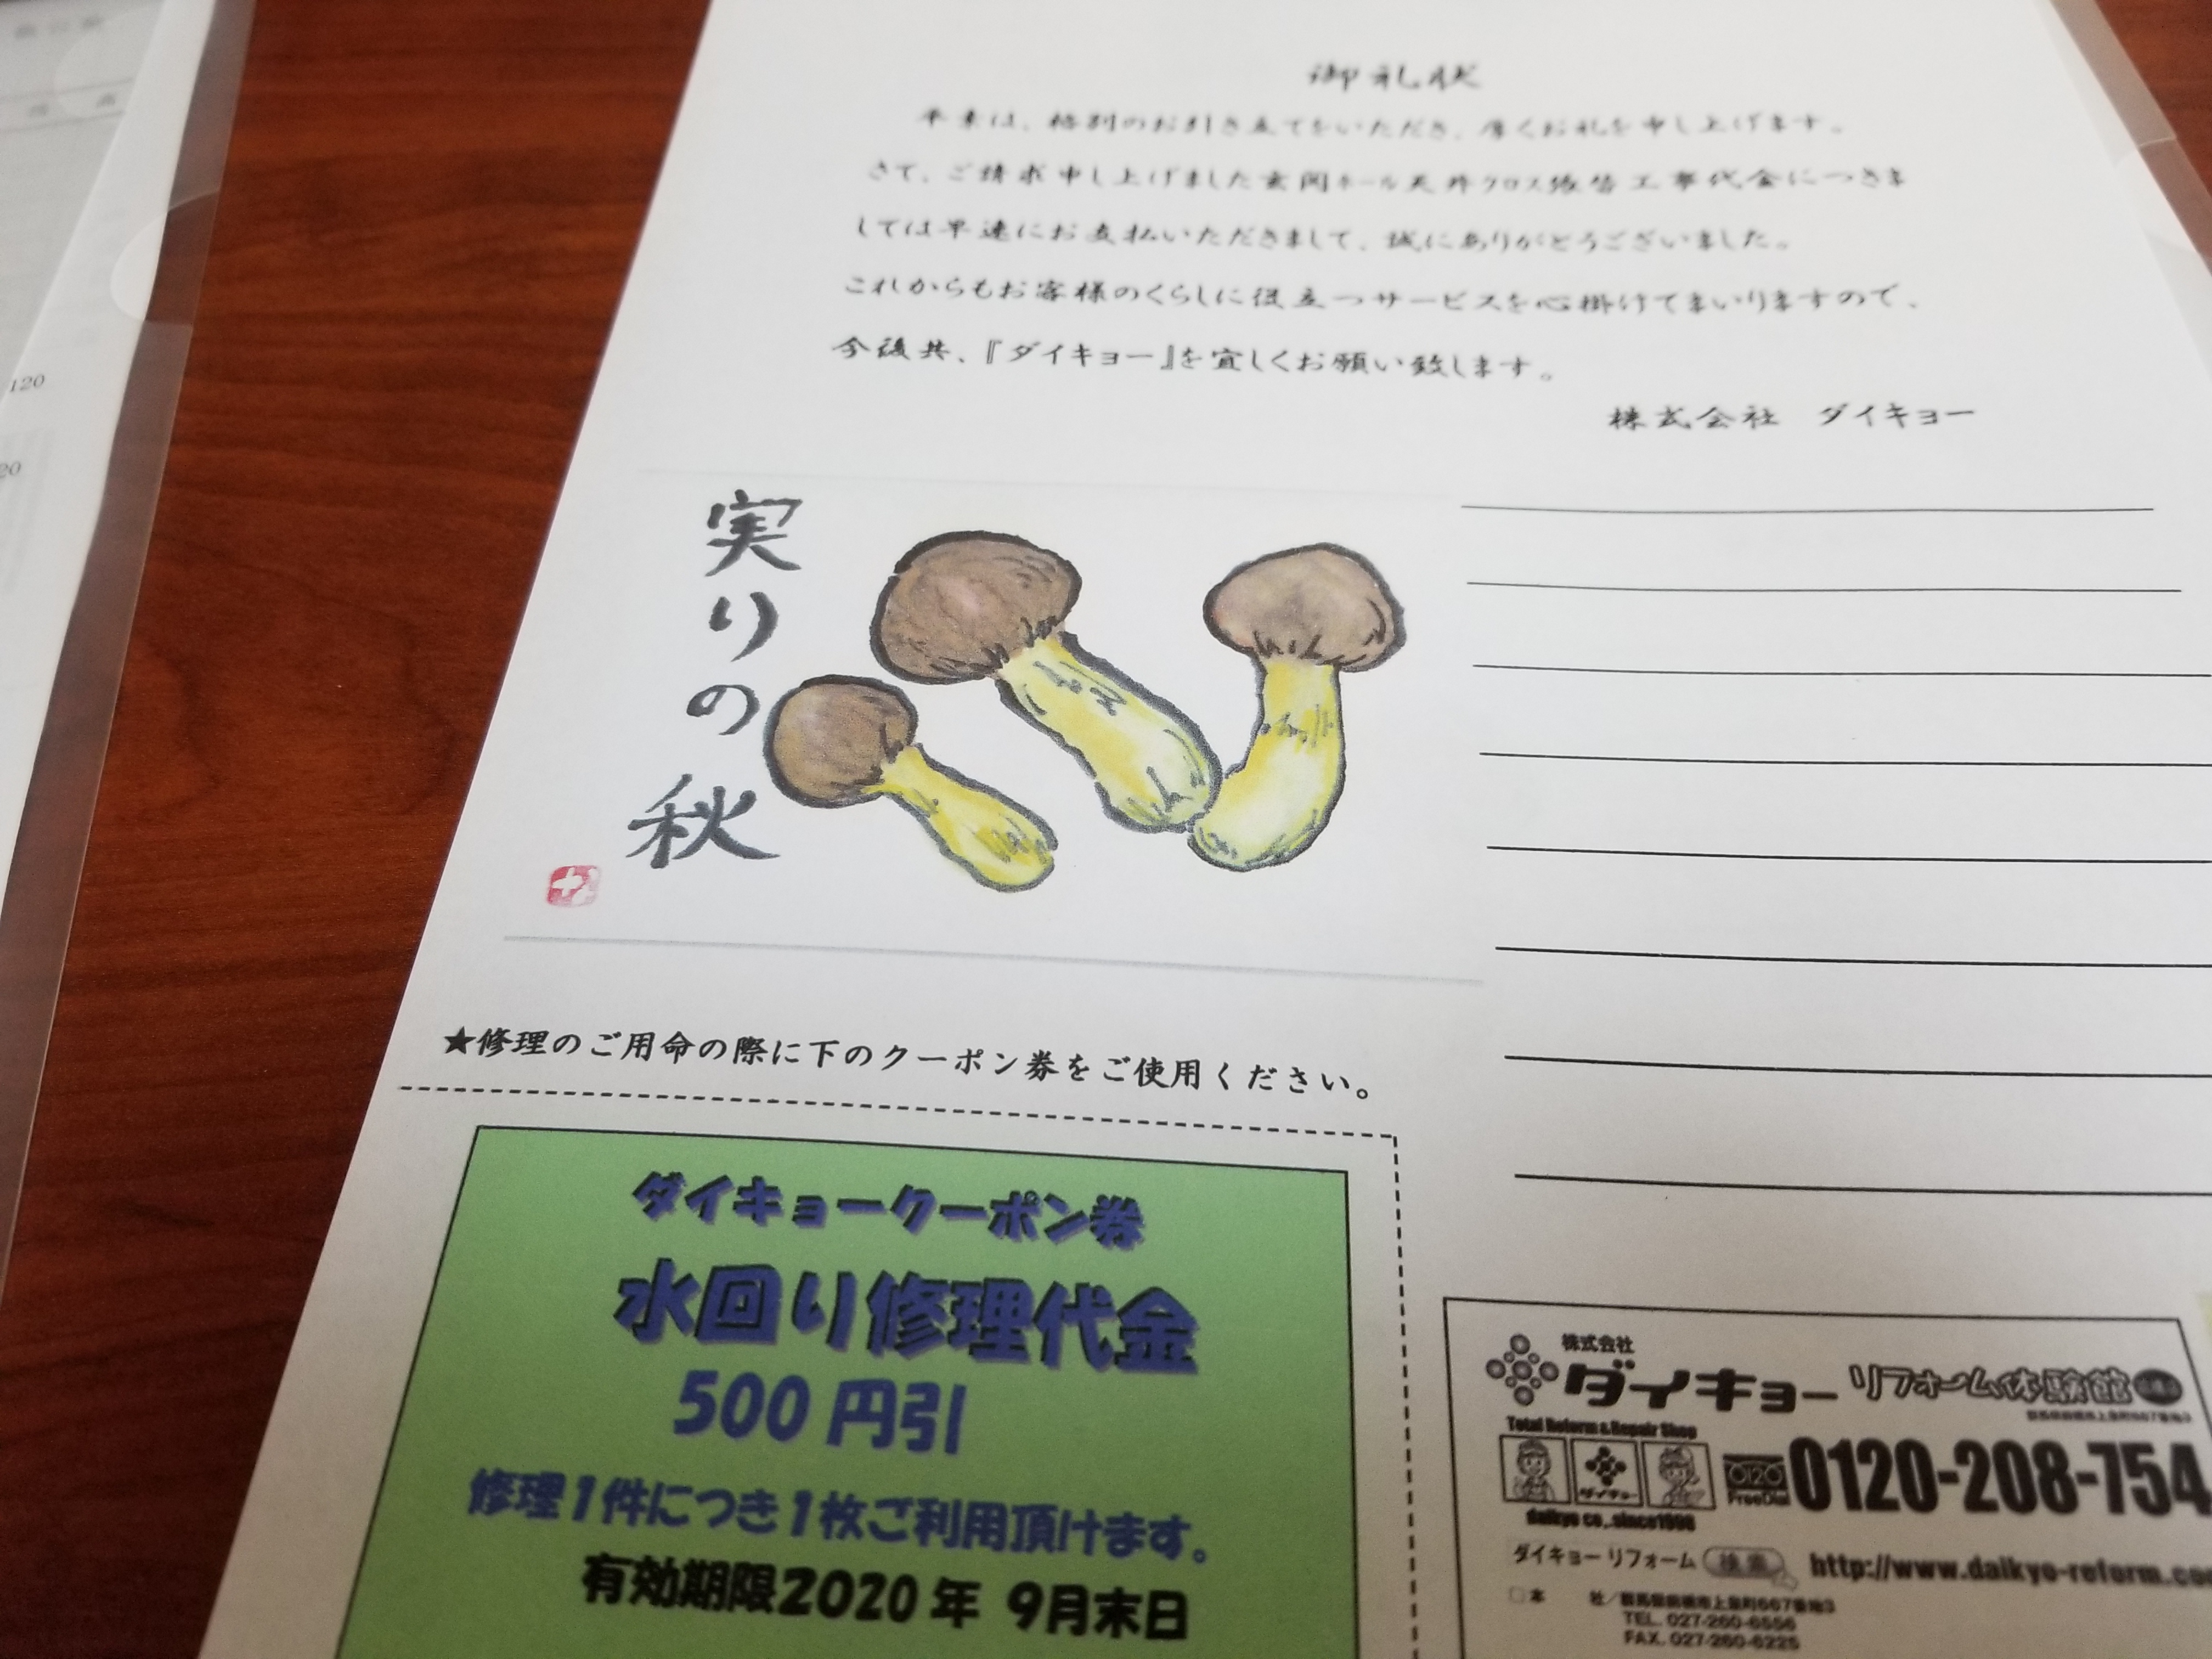 御礼状
平素は、格別のお引き立てをいただき、厚くお礼を申し上げます。
さて、ご請求申し上げました玄関ホール天井クロス張替工事代金につきま
しては早速にお支払いただきまして、誠にありがとうございました。
これからもお客様のくらしに役立つサービスを心掛けてまいりますので、
今後共、『ダイキョー』を宜しくお願い致します。
株式会社 ダイキョー
120
20
実りの秋
★修理のご用命の際に下のクーポン券をご使用ください。
ダイキョークーポン券
水回り修理代金
500円引
修理1件につき1枚ご利用頂けます。
有効期限2020年 9月末日
株式会社
ダイキョー リフォーム体験館
Total Reform & Repair Shop
ダイキョー
daikyo co,.since1998
0120
FreeDial
0120-208-754
ダイキョー リフォーム 検索 http://www.daikyo-reform.co
本 社/群馬県前橋市上泉町667番地3
TEL. 027-260-6556
FAX. 027-260-6225